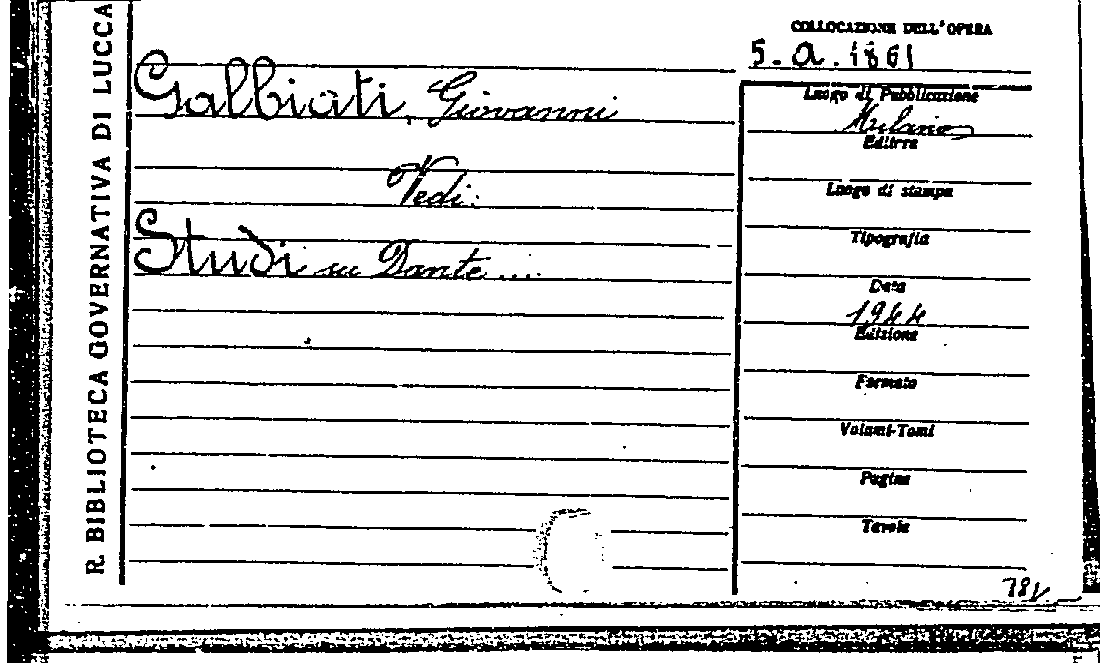 R. BIBLIOTECA GOVERNATIVA DI LUCCA
COLLOCAZIONE DELL'OPERA
5. a. 1861
Galbiati, Giovanni
Vedi:
Studi su Dante ....
Luogo di Pubblicazione
Milano
Editore
Luogo di stampa
Tipografia
Data
1944
Edizione
Formato
Volumi-Tomi
Pagine
Tavole